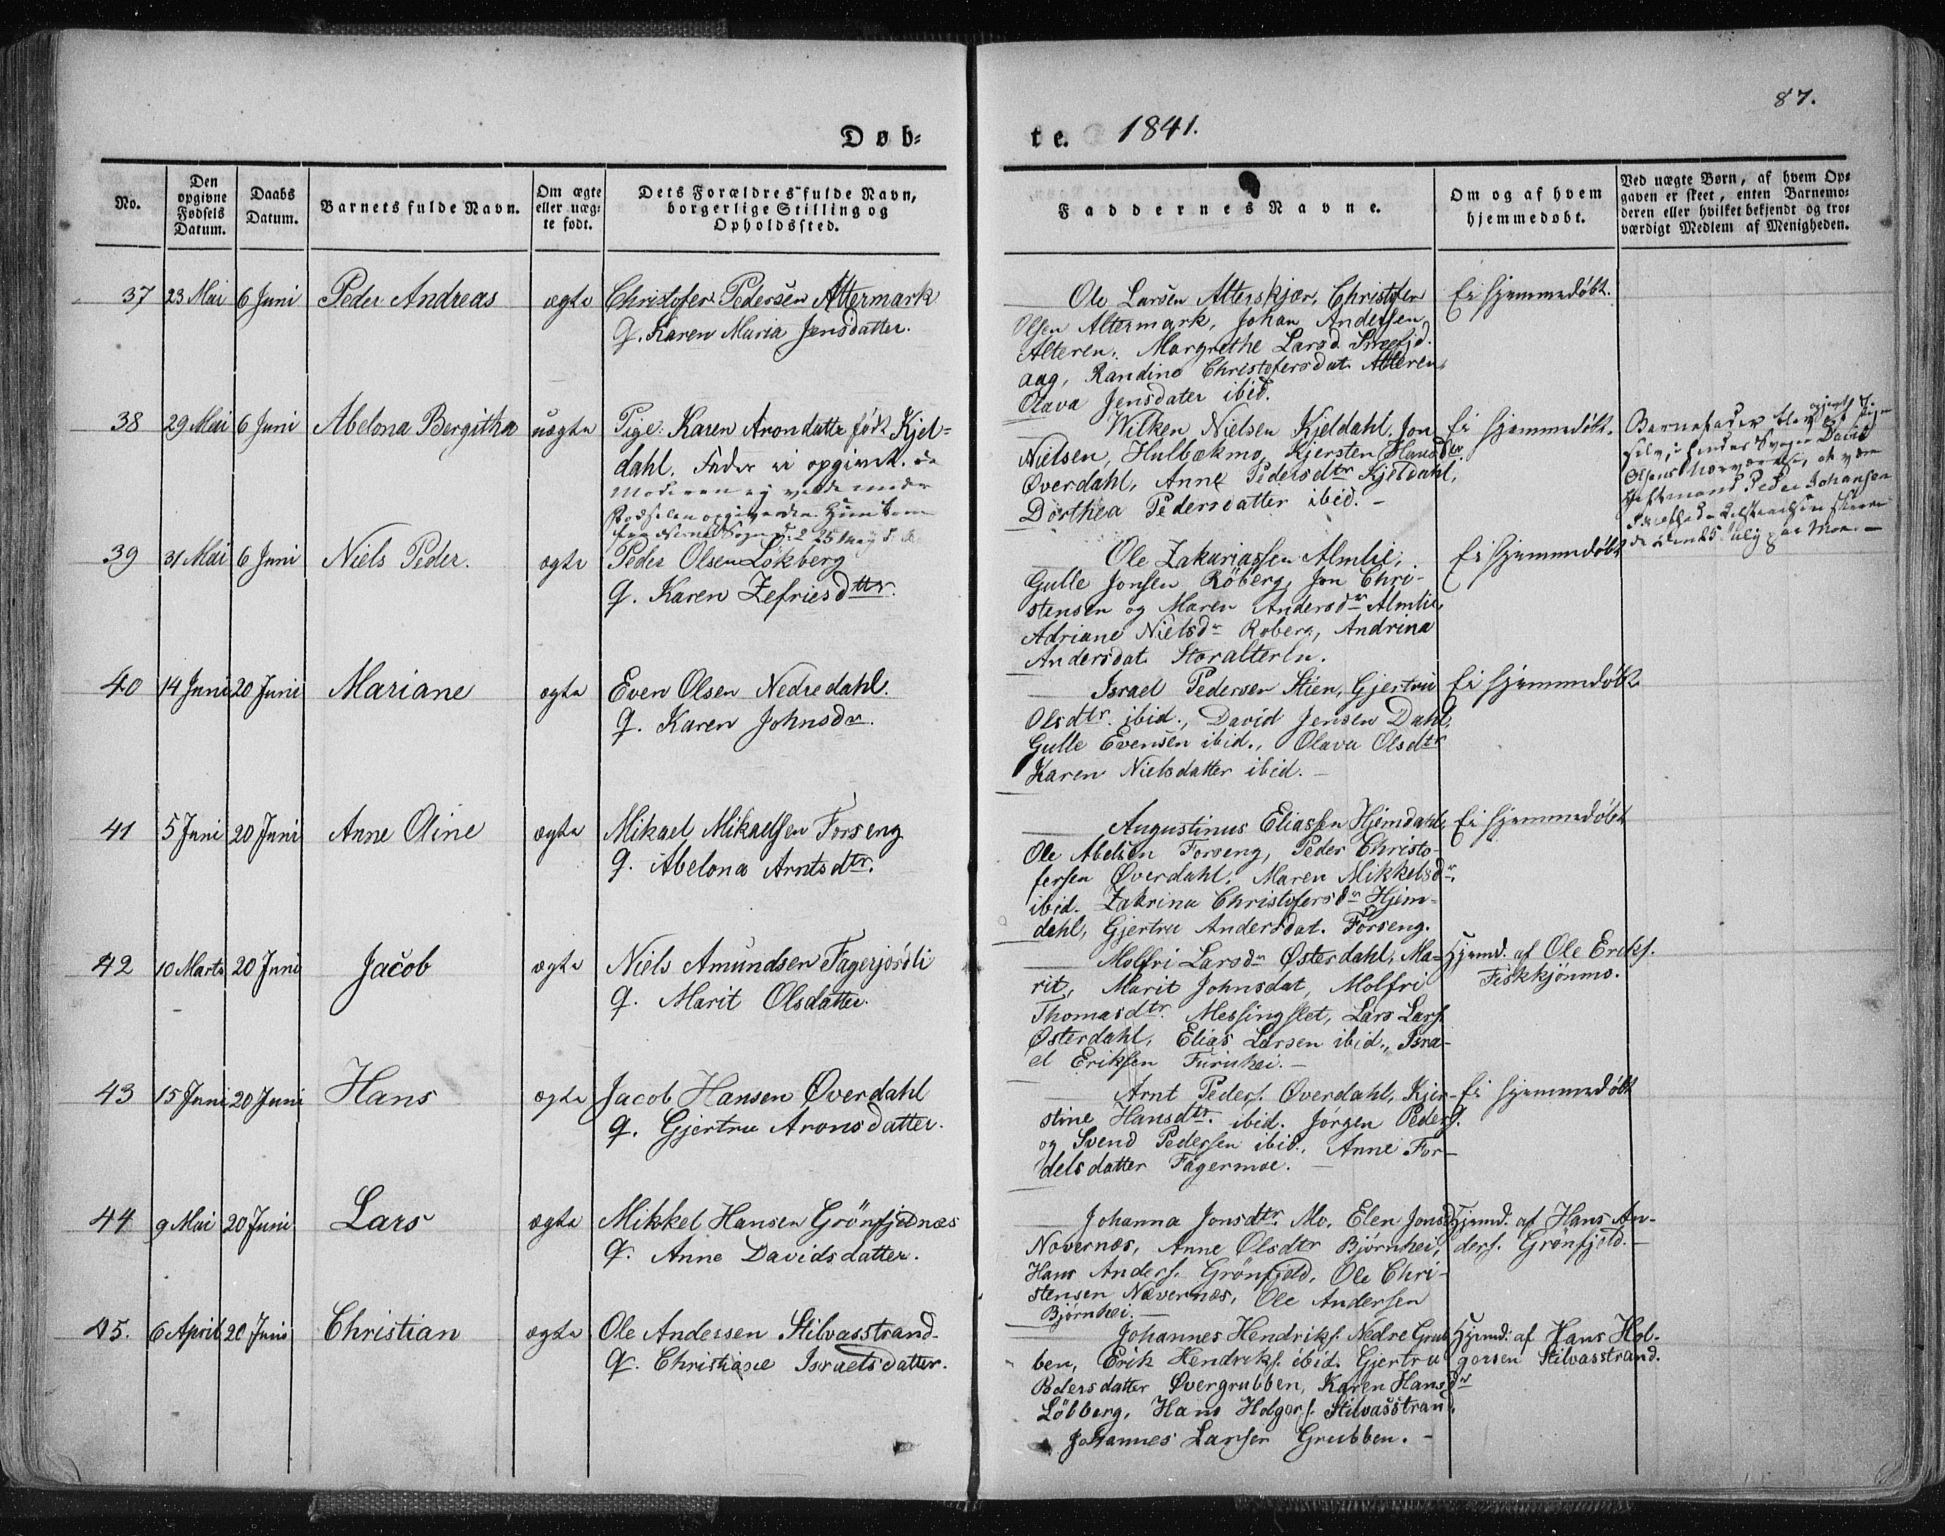 87.
Døb-
te. 1841.
No.
Den
opgivne
Fødsels
Datum.
Daabs
Datum.
Barnets fulde Navn.
Om ægte
eller uæg-
te født.
Dets Forældres fulde Navn,
borgerlige Stilling og
Opholdssted.
Faddernes Navne.
Om og af hvem
hjemmedøbt.
Ved uægte Børn, af hvem Op-
gaven er skeet, enten Barnemo-
deren eller hvilket bekjendt og tro-
værdigt Medlem af Menigheden.
37 23 Mai 6 Juni Peder Andreas ægte
Christofer Pedersen Altermark
q. Karen Maria Jensdatter.
Ole Larsen Alterskjær, Christofer
Olsen Altermark, Johan Andersen
Alteren, Margrethe Larsd.
aag, Randine Christofersdat. Alteren,
Olava Jensdater ibid.
Ei hjemmedøbt.
38 29 Mai 6 Juni Abelona Bergitha uægte
Pige Karen Arondatter født Kjel-
dahl. Fader ei opgivet. da
Moderen ei
Wilken Nielsen Kjeldahl, Jon
Nielsen, Hulbækmo, Kjersten Hansdtr.
Øverdahl, Anne Pedersdtr Kjeldahl,
Dorthea Pedersdatter ibid. -
Ei hjemmedøbt.
Barnefader blev opgivet
selv, i hendes Svoger David
Olsens Nærværelse, at være
Peder Johansen
39 31 Mai 6 Juni Niels Peder. ægte
Peder Olsen Løkberg
q. Karen Zefriesdttr.
Ole Zakariassen Almlie,
Gulle Jonsen Röberg, Jon Chri-
stensen og Maren Andersdr Almlie,
Adriane Nielsdr Roberg, Andrina
Andersdat. Storalteren.
Ei hjemmedøbt
40 14 Juni 20 Juni Mariane ægte
Even Olsen Nedredahl.
q. Karen Johnsdr.
Israel Pedersen Stien, Gjertru
Olsdtr. ibid., David Jensen Dahl,
Gulle Evensen ibid., Olava Olsdtr
Karen Nielsdatter ibid. -
Ei hjemmedøbt
41 5 Juni 20 Juni Anne Oline ægte
Mikael Mikaelsen Forseng
q. Abelona Arntsdtr.
Augustinus Eliassen Hjemdahl,
Ole Abelsen Forseng, Peder Christo-
fersen Øverdahl, Maren Mikkelsdr.
ibid. Zakrina Christofersdr Hjem-
dahl, Gjertru Andersdat. Forseng.
Ei hjemmedøbt
42 10 Marts 20 Juni Jacob ægte
Niels Amundsen Fagerjorðli
q. Marit Olsdatter.
Molfri Larsdr Østerdahl, Ma-
rit, Marit Johnsdat, Molfri
Thomasdtr. Messingslet, Lars Lars.
Østerdahl, Elias Larsen ibid., Isra-
el Eriksen Furuhei. -
Hjemd. af Ole Eriks.
Fiskkjönmo.
43 15 Juni 20 Juni Hans ægte
Jacob Hansen Øverdahl
q. Gjertru Aronsdatter.
Arnt Peders. Øverdahl, Kjer-
stine Hansdtr. ibid. Jørgen Peders.
og Svend Pedersen ibid., Anne For-
delsdatter Fagermoe. -
Ei hjemmedøbt
44 9 Mai 20 Juni Lars ægte
Mikkel Hansen Grönfjeldnæs
q. Anne Davidsdatter.
Johanna Jonsdtr. Mo, Elen Jonsd.
Novernæs, Anne Olsdtr Bjørnhei,
Hans Anders. Grönfjeld, Ole Chri-
stensen Nævernæs, Ole Andersen
Bjørnhei. -
Hjemd. af Hans An-
ders. Grönfjeld. -
45. 6 April 20 Juni Christian ægte
Ole Andersen Stilvasstrand
q. Christiane Israelsdatter.
Johannes Hendriks. Nedre Grub-
ben, Erik Hendriks. ibid. Gjertru
Pedersdatter Øvergrubben, Karen Hansdr
Löbberg, Hans Holgers. Stilvasstran,
Johannes Larsen Grubben. -
Hjemd. af Hans Hol-
gersen Stilvasstrand.